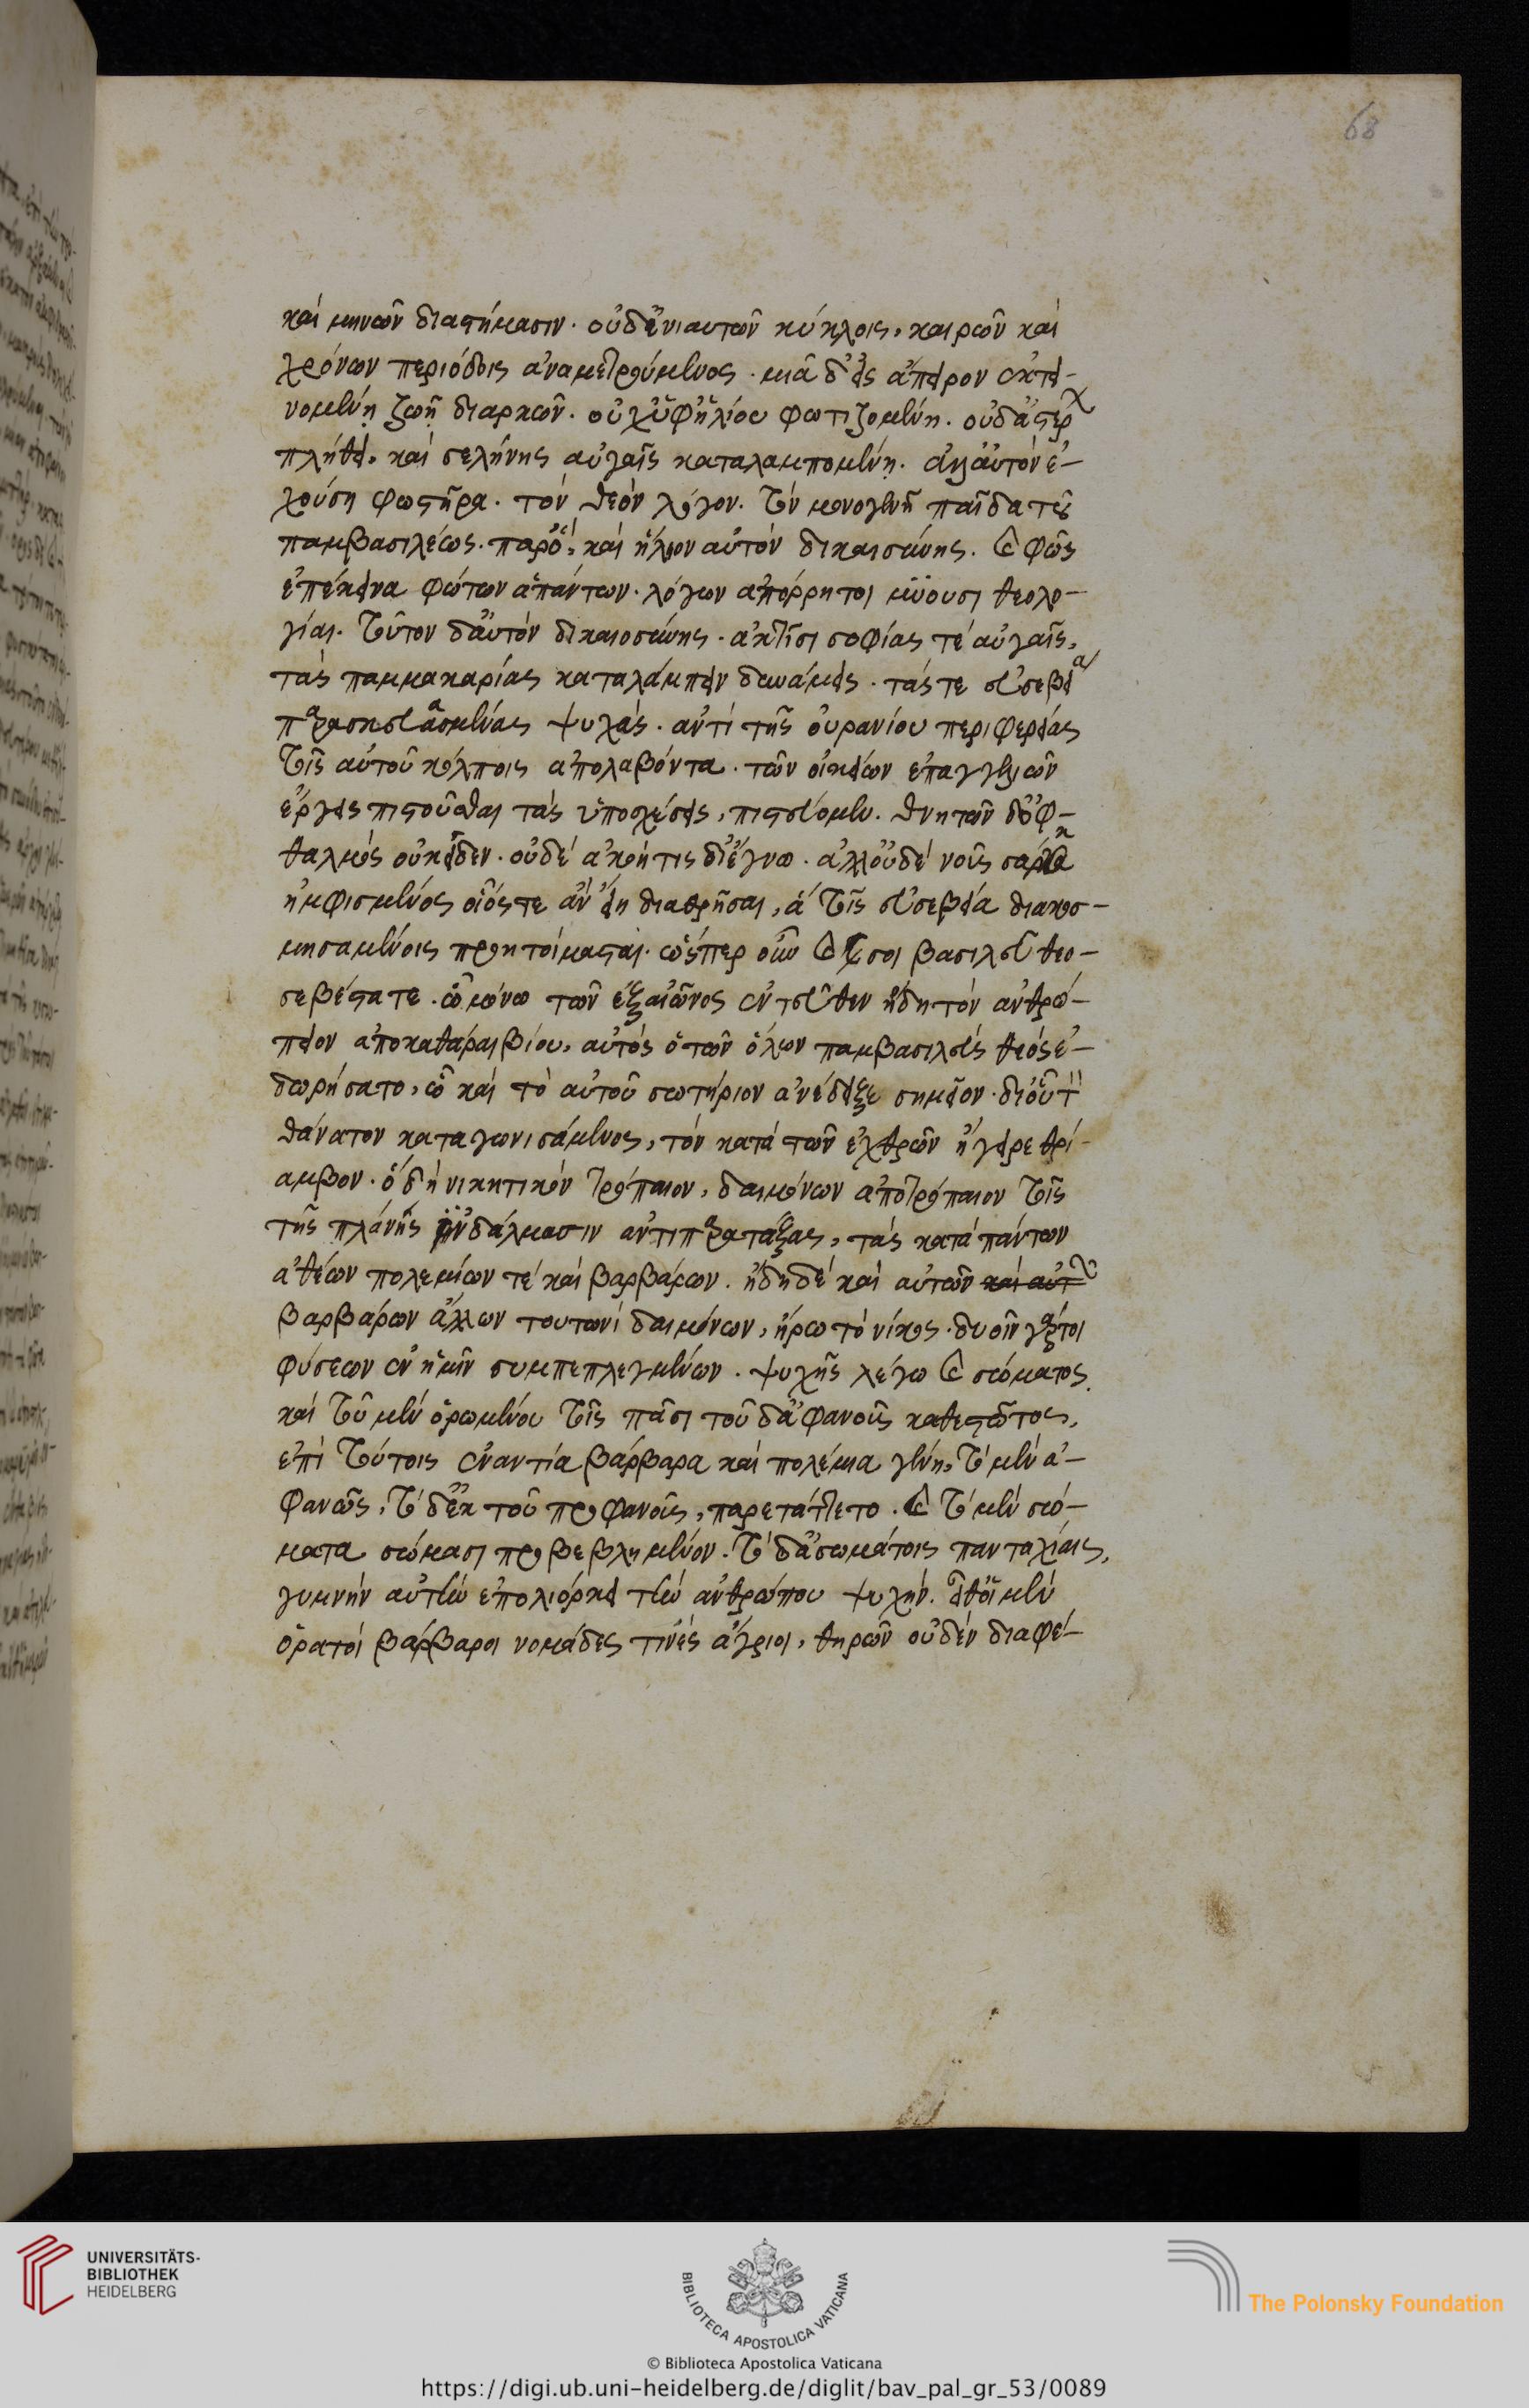 68
καὶ μηνῶν διαστήμασιν· οὐδ' ἐνιαυτῶν κύκλοις, καιρῶν καὶ
χρόνων περιόδοις ἀναμετρούμενος· μιᾷ δ' εἰς ἄπειρον ἐκτει-
νομένῃ ζωῇ διαρκῶν· οὐχ ὑφ' ἡλίου φωτιζομένη· οὐδ' ἀστέρων
πλήθει, καὶ σελήνης αὐγαῖς καταλαμπομένη· ἀλλ' αὐτὸν ἐ-
χούση φωστῆρα· τὸν θεὸν λόγον· τὸν μονογενῆ παῖδα τοῦ
παμβασιλέως· παρ' ὃ, καὶ ἥλιον αὐτὸν δικαιοσύνης· καὶ φῶς
ἐπέκεινα φώτων ἁπάντων· λόγων ἀπόρρητοι μύουσι θεολο-
γίαι· τοῦτον δ' αὐτὸν δικαιοσύνης· ἀκτῖσι σοφίας τὲ αὐγαῖς,
τὰς παμμακαρίας καταλάμπειν δυνάμεις· τάς τε εὐσεβείᾳ
παρασκευασμένας ψυχὰς· ἀντὶ τῆς οὐρανίου περιφερείας
τοῖς αὐτοῦ κόλποις ἀπολαβόντα· τῶν οἰκείων ἐπαγγελιῶν
ἔργοις πιστοῦσθαι τὰς ὑποσχέσεις, πιστεύομεν· θνητῶν δ' ὀφ-
θαλμὸς οὐκ εἶδεν· οὐδὲ ἀκοή τις διέγνω· ἀλλ' οὐδὲ νοῦς σάρκα
ἠμφιεσμένος οἷός τε ἂν εἴη διαθρῆσαι, ἃ τοῖς εὐσεβείᾳ διακοσ-
μησαμένοις προητοίμασται· ὥσπερ οὖν καὶ σοὶ βασιλεῦ θεο-
σεβέστατε· ᾧ μόνῳ τῶν ἐξ αἰῶνος ἐντεῦθεν ἤδη τὸν ἀνθρώ-
πειον ἀποκαθάραι βίον, αὐτὸς ὁ τῶν ὅλων παμβασιλεὺς θεὸς ἐ-
δωρήσατο, ᾧ καὶ τὸ αὐτοῦ σωτήριον ἀνέδειξε σημεῖον· δι' οὗ τὸν
θάνατον καταγωνισάμενος, τὸν κατὰ τῶν ἐχθρῶν ἤγειρε θρί-
αμβον· ὃ δὴ νικητικὸν τρόπαιον, δαιμόνων ἀποτρόπαιον τοῖς
τῆς πλάνης ἰνδάλμασιν ἀντιπαρατάξας, τὰς κατὰ πάντων
ἀθέων πολεμίων τὲ καὶ βαρβάρων· ἤδη δὲ καὶ αὐτῶν καὶ αὐτῶν
βαρβάρων ἄλλων τουτωνὶ δαιμόνων, ἤρω τὸ νίκος· δυοῖν γάρ τοι
φύσεων ἐν ἡμῖν συμπεπλεγμένων· ψυχῆς λέγω καὶ σώματος,
καὶ τοῦ μὲν ὁρωμένου τοῖς πᾶσι τοῦ δ' ἀφανοῦς καθεστῶτος,
ἐπὶ τούτοις ἐναντία βάρβαρα καὶ πολέμια γένη, τὸ μὲν ἀ-
φανῶς, τὸ δ' ἐκ τοῦ προφανοῦς, παρετάττετο· καὶ τὸ μὲν σώ-
ματα σώμασι προβεβλημένον· τὸ δ' ἀσωμάτοις πανταχίαις,
γυμνὴν αὐτὴν ἐπολιόρκει τὴν ἀνθρώπου ψυχήν· εἶθ' οἱ μὲν
ὁρατοὶ βάρβαροι νομάδες τινὲς ἄγριοι, θηρῶν οὐδὲν διαφέ-
UNIVERSITÄTS-
BIBLIOTHEK
HEIDELBERG
BIBLIOTECA APOSTOLICA VATICANA
© Biblioteca Apostolica Vaticana
The Polonsky Foundation
https://digi.ub.uni-heidelberg.de/diglit/bav_pal_gr_53/0089